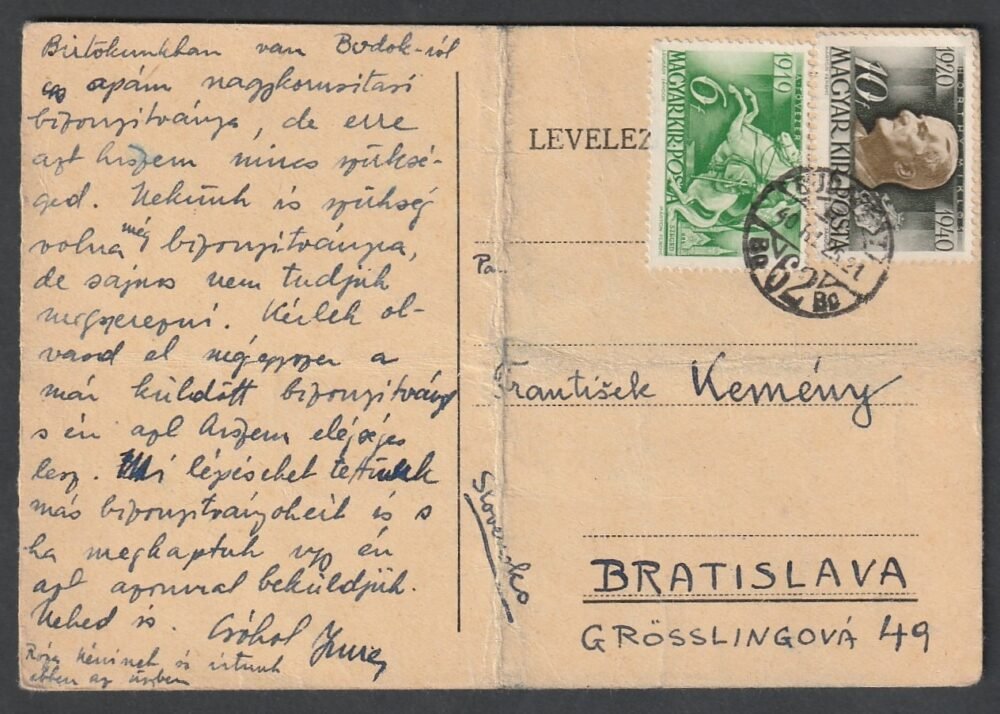 Birtokunkban van Bodok-ról
apám nagykorusitasi
bizonyitványa, de erre
azt hiszem nincs szüksé-
ged. Nekünk is szükség
volna még bizonyitványra,
de sajnos nem tudjuk
megszerezni. Kérlek ol-
vasd el mégegyszer a
már küldött bizonyitványt
s én azt hiszem elégséges
lesz. Mi lépéseket tettünk
más bizonyitványokért is s
ha megkaptuk úgy én
azt azonnal beküldjük.
Neked is. Csókol Imre
Róza Néninek is irtunk
ebben az ügyben
LEVELEZ
1919
A FŐVEZÉR
6f
MAGYAR KIR. POSTA
SZEGED
1920
HORTHY MIKLÓS
10f
MAGYAR KIR. POSTA
1940
62
Pa
František Kemény
Slovensko
BRATISLAVA
GRÖSSLINGOVÁ 49